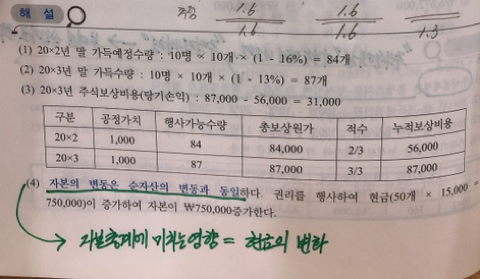 해 설
추정 1.6 1.6
1.6 1.6 1.3
(1) 20×2년 말 가득예정수량 : 10명 × 10개 × (1 - 16%) = 84개
(2) 20×3년 말 가득수량 : 10명 × 10개 × (1 - 13%) = 87개
(3) 20×3년 주식보상비용(당기손익) : 87,000 - 56,000 = 31,000
구분 공정가치 행사가능수량 총보상원가 적수 누적보상비용
20×2 1,000 84 84,000 2/3 56,000
20×3 1,000 87 87,000 3/3 87,000
(4) 자본의 변동은 순자산의 변동과 동일하다. 권리를 행사하여 현금(50개 × 15,000 =
750,000)이 증가하여 자본이 ₩750,000증가한다.
→ 자본총계에 미치는영향 = 현금의 변화